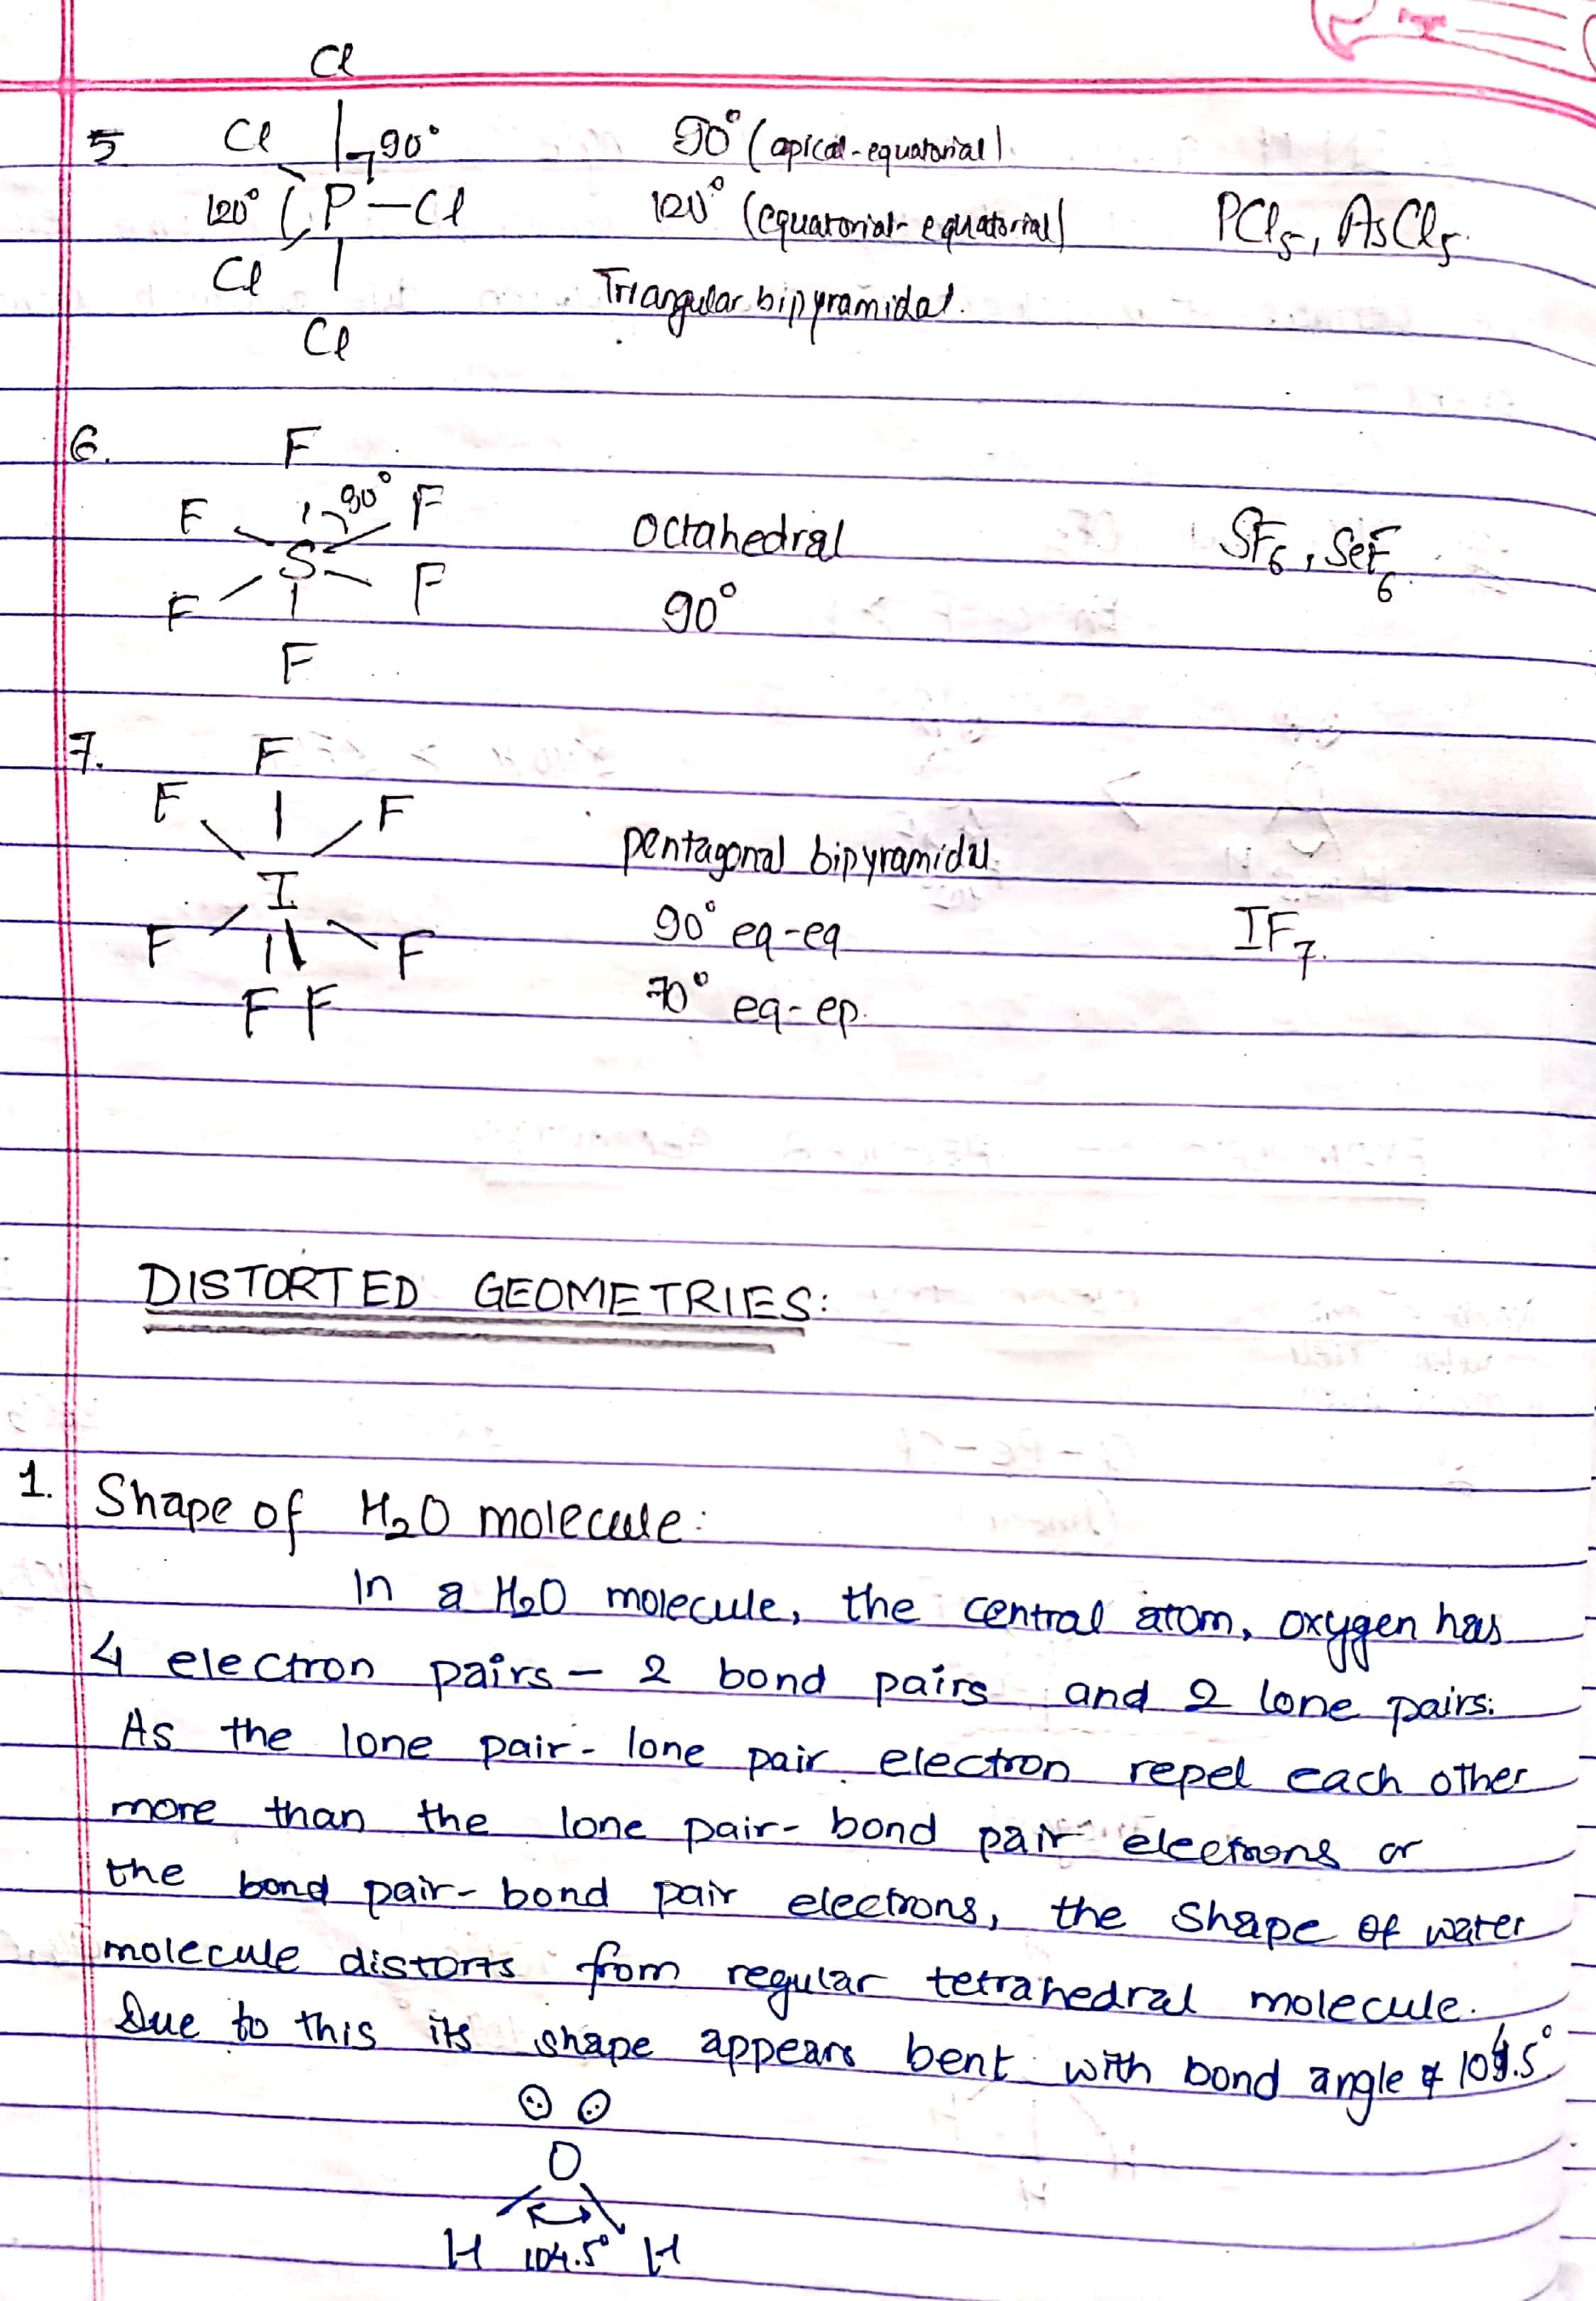 Page
Cl
5 Cl 90° 90° (apical-equatorial)
120° P - Cl 120° (equatorial-equatorial) PCl5, AsCl5.
Cl Triangular bipyramidal.
Cl
6. F
F 90° F Octahedral SF6, SeF6
S
F F 90°
F
7. F
F F pentagonal bipyramidal
I 90° eq-eq IF7.
F F 70° eq-ep.
F F
DISTORTED GEOMETRIES:
1. Shape of H2O molecule:
In a H2O molecule, the central atom, oxygen has
4 electron pairs - 2 bond pairs and 2 lone pairs.
As the lone pair - lone pair electron repel each other
more than the lone pair - bond pair electrons or
the bond pair - bond pair electrons, the shape of water
molecule distorts from regular tetrahedral molecule.
Due to this its shape appears bent with bond angle of 104.5°
O
H 104.5° H